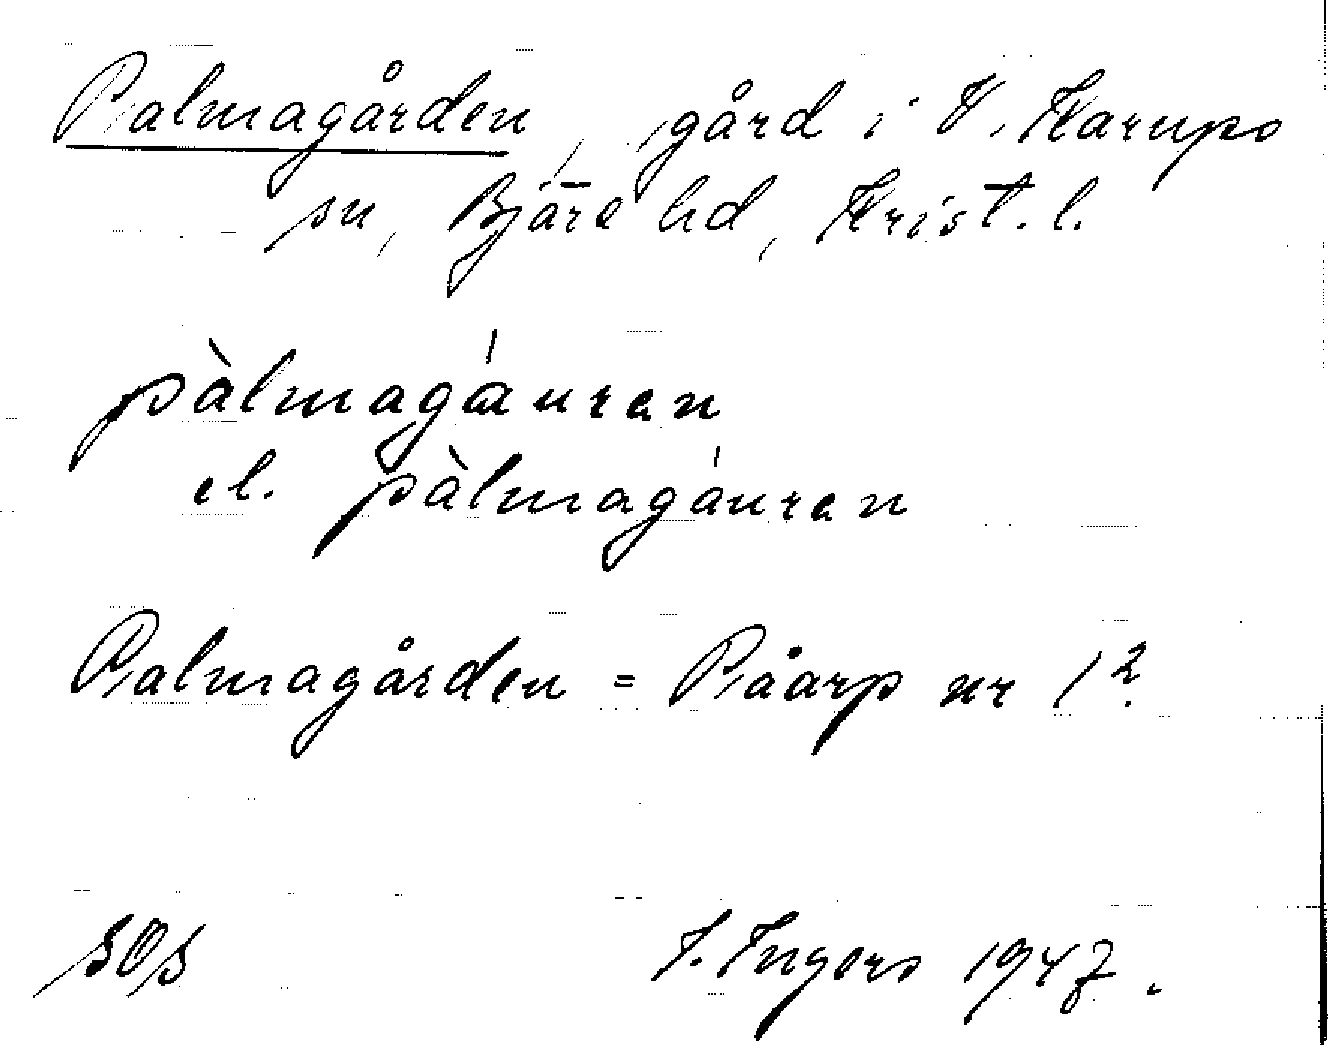 Palmagården, gård i V. Karups
sn, Bjäre hd, Krist. l.
pàlmagáuran
el. pàlmagáuran
Palmagården = Påarp nr 1².
SOS
I. Ingers 1947.